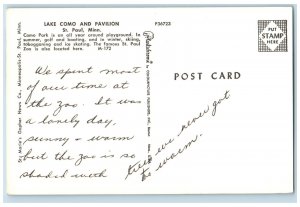 LAKE COMO AND PAVILION
St. Paul, Minn.
P36723
Como Park is an all year around playground. In
summer, golf and boating, and in winter, skiing,
tobogganing and ice skating. The famous St. Paul
Zoo is also located here. M-172
PUT
STAMP
HERE
POST CARD
We spent most
of our time at
the zoo. It was
a lovely day,
sunny - warm
but the zoo is so
shaded with
trees we never got
to warm.